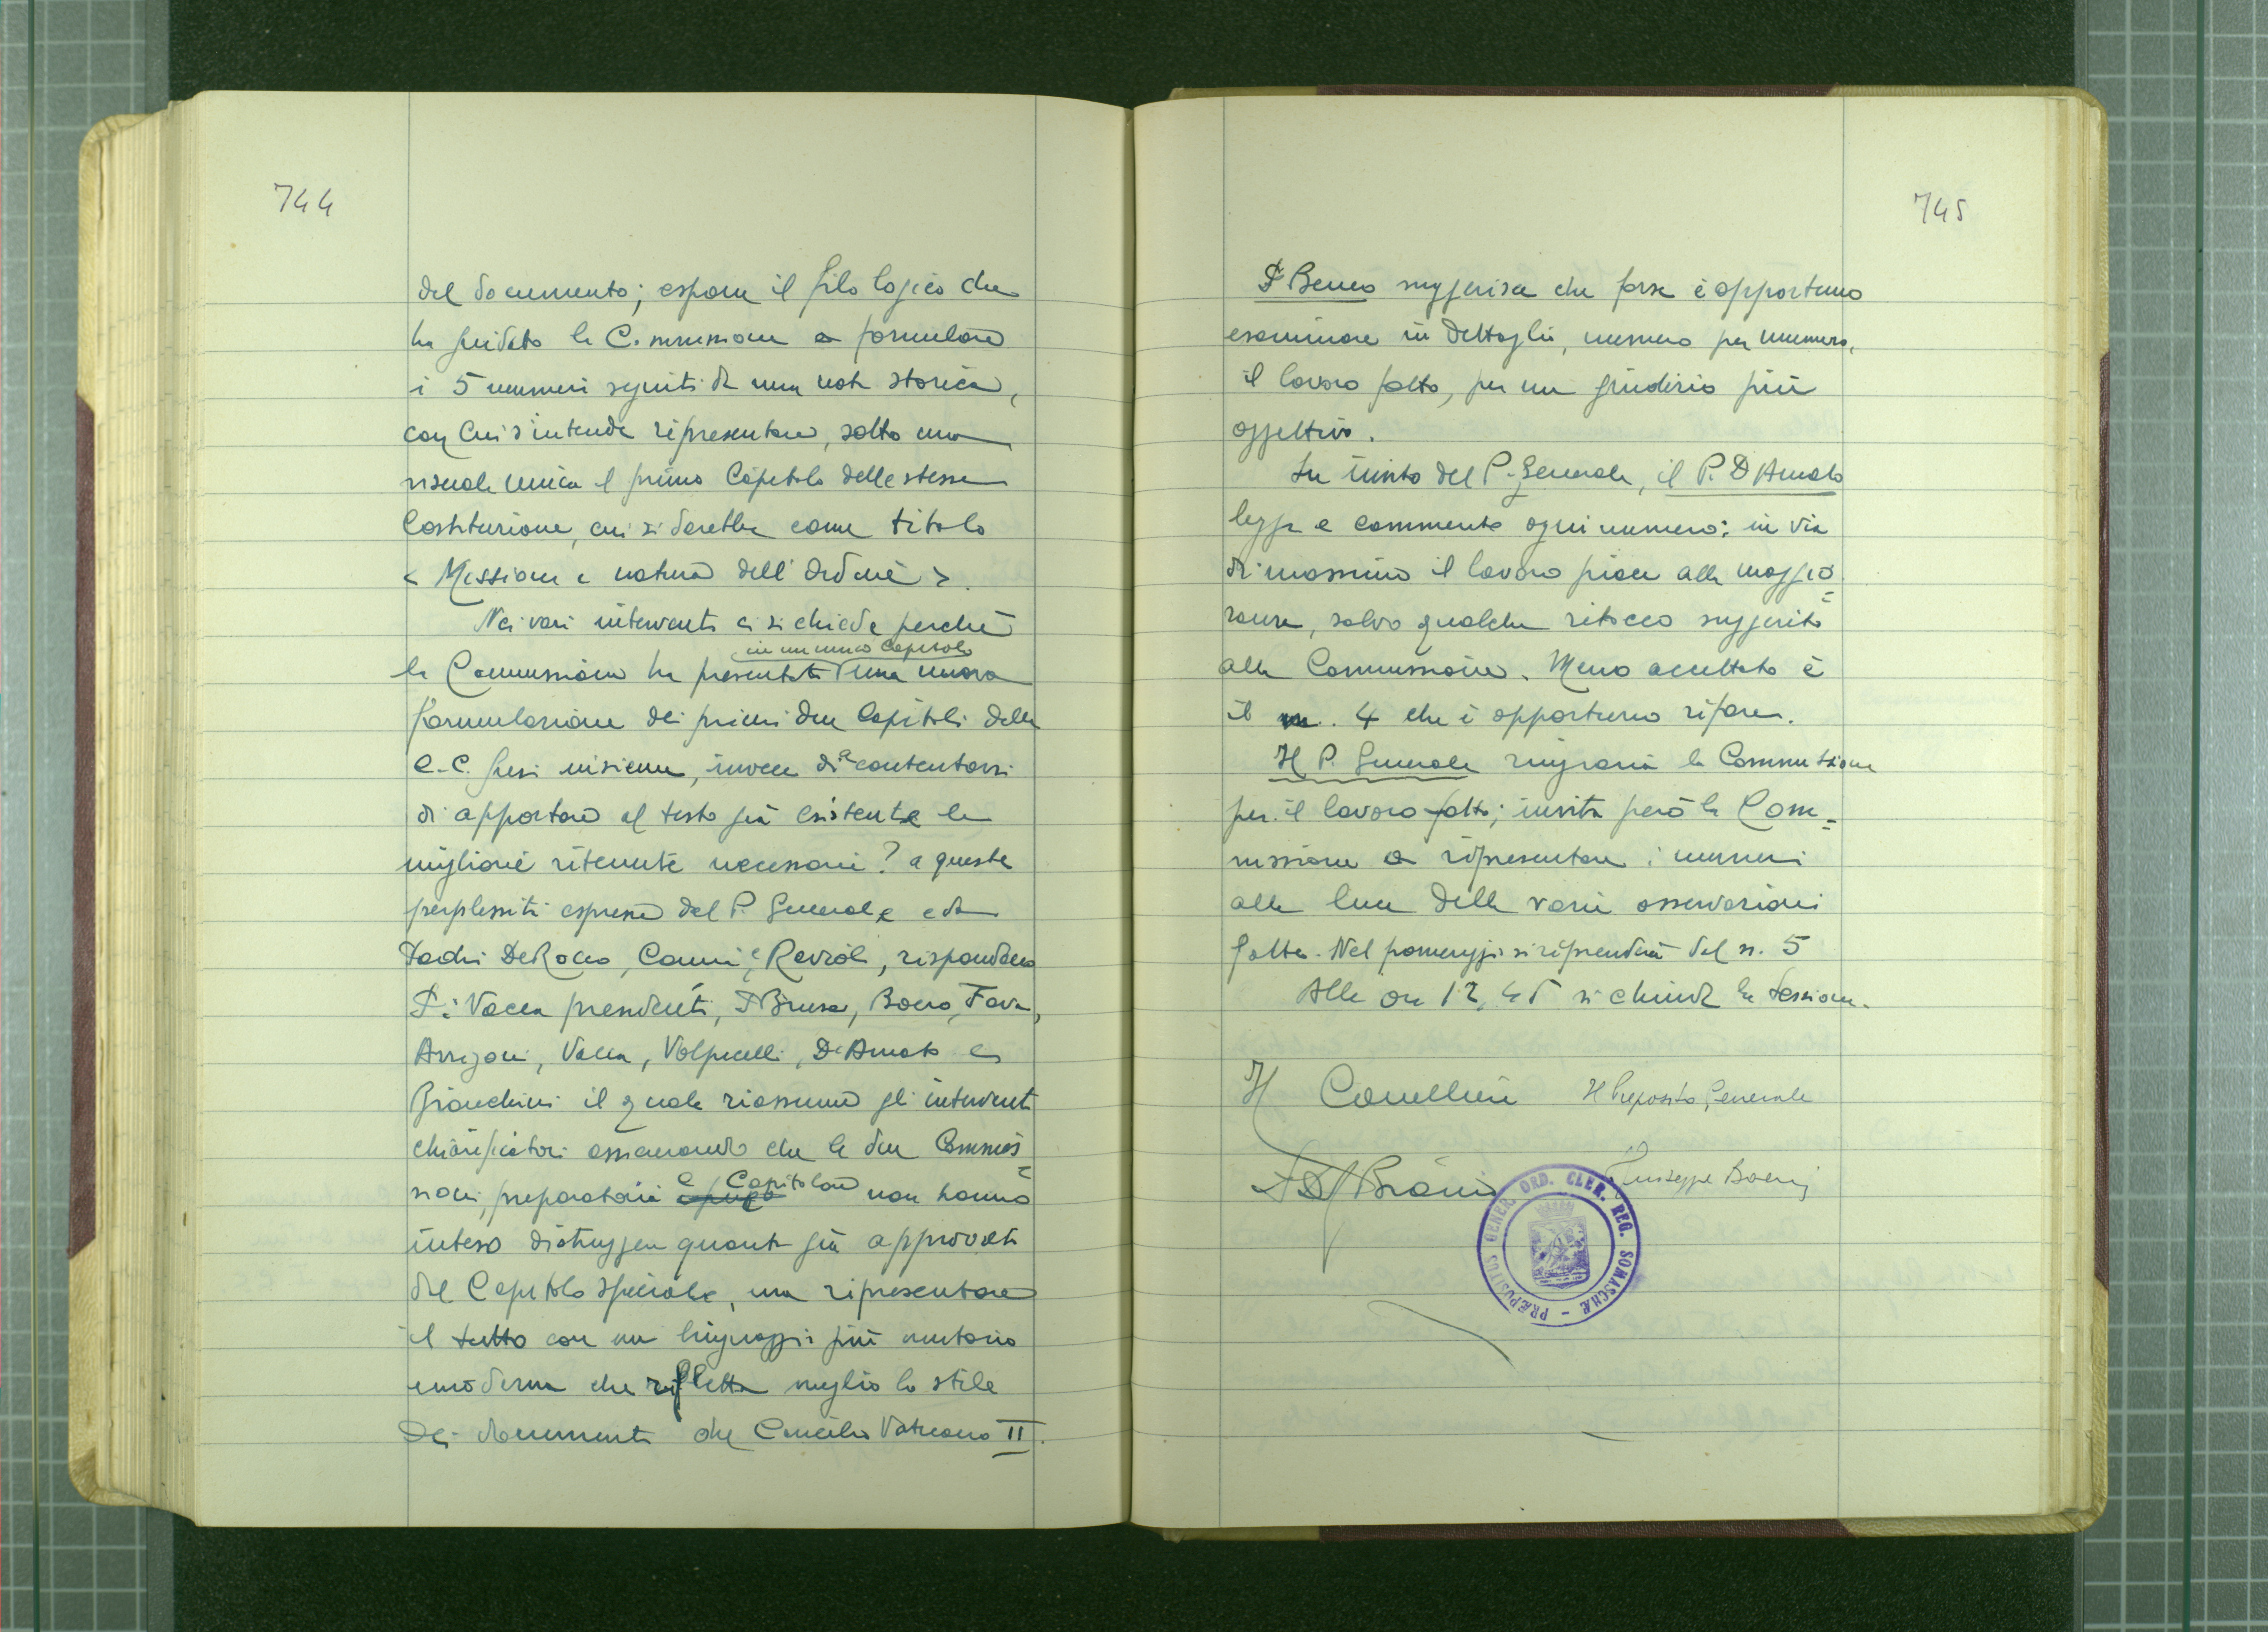 744
del documento; espone il filo logico che
ha guidato la Commissione a formulare
i 5 numeri seguiti da una nota storica,
con cui s'intende ripresentare, sotto una
visuale unica il primo Capitolo delle stesse
Costituzione, cui si darebbe come titolo
< Missione e natura dell'Ordine >.
Nei vari interventi ci si chiede perché
in un unico Capitolo
la Commissione ha presentato una nuova
formulazione dei primi due Capitoli delle
C.C. fusi insieme, invece di accontentarsi
di apportare al testo già esistente le
migliorie ritenute necessarie? a queste
perplessità espresse dal P. Generale e da
Padri De Rocco, Caimi e Raviolo, rispondono
P. Vacca presidente, P. Brusa, Boero, Fava,
Arrigoni, Vacca, Volpicelli, D'Amato e
Bianchini il quale riassume gli interventi
chiarificatori assicurando che le due Commis=
sioni, preparatoria e Capitolare non hanno
inteso distruggere quanto già approvato
dal Capitolo speciale, ma ripresentare
il tutto con un linguaggio più unitario
e moderno che rifletta meglio lo stile
dei documenti del Concilio Vaticano II.
745
P. Boero suggerisce che forse è opportuno
esaminare in dettaglio, numero per numero,
il lavoro fatto, per un giudizio più
oggettivo.
Su invito del P. Generale, il P. D'Amato
legge e commenta ogni numero: in via
di massima il lavoro piace alla maggio=
ranza, salvo qualche ritocco suggerito
alla Commissione. Meno accettato è
il n. 4 che è opportuno rifare.
Il P. Generale ringrazia la Commissione
per il lavoro fatto; invita però la Com=
missione a ripresentare i numeri
alla luce delle varie osservazioni
fatte. Nel pomeriggio si riprenderà dal n. 5
Alle ore 12,45 si chiude la sessione.
Il Cancelliere Il Preposito Generale
Giuseppe Boeris
PRÆPOSITUS GENER. ORD. CLER. REG. SOMASCHÆ